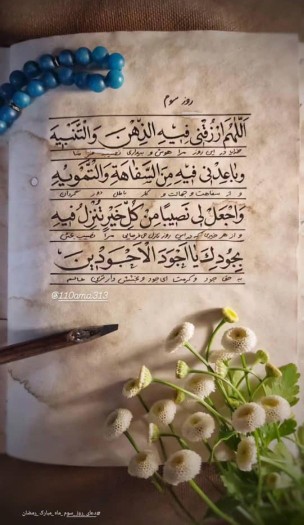 روز سوم
اَللّهُمَّ ارْزُقْنی فیهِ الذِّهْنَ وَالتَّنْبیهَ
خدایا در این روز مرا هوش و بیداری نصیب فرما
وَباعِدْنی فیهِ مِنَ السَّفاهَةِ وَالتَّمْویهِ
و از سفاهت و جهالت و کار باطل دور گردان
وَاجْعَلْ لی نَصیباً مِنْ کُلِّ خَیْرٍ تُنْزِلُ فیهِ
و از هر خیری که در این روز نازل می‌فرمایی مرا نصیب بخش
بِجودِکَ یا اَجْوَدَ الْاَجْوَدینَ
به حق جود و کرمت ای جود و بخشش دارترین عالم
@110ama313
#دعای_روز_سوم_ماه_مبارک_رمضان